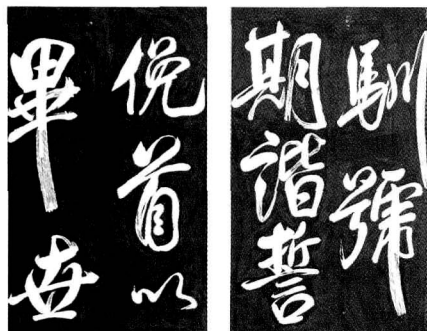 馴號
期諧誓
俛首以
畢世